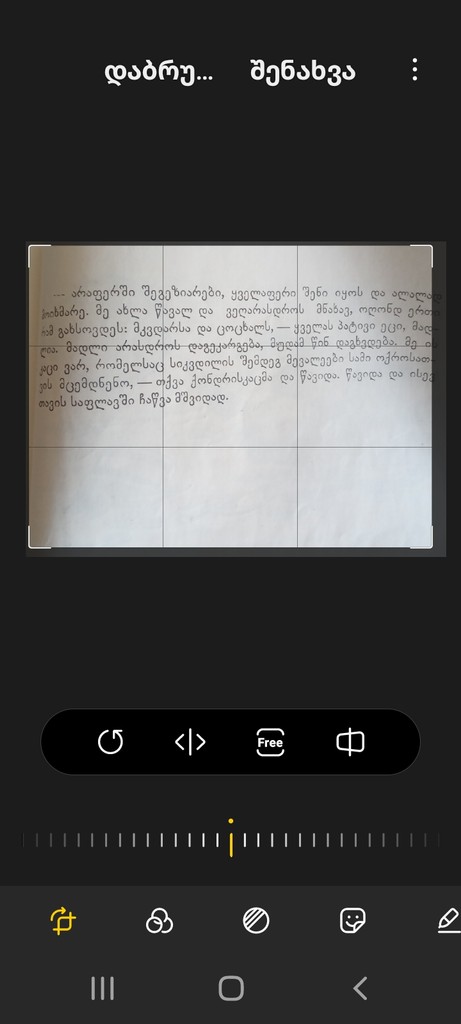 დაბრუ... შენახვა
— არაფერში შეგეზიარები, ყველაფერი შენი იყოს და ალალად
მოიხმარე. მე ახლა წავალ და ვეღარასდროს მნახავ, ოღონდ ერთი
რამ გახსოვდეს: მკვდარსა და ცოცხალს, — ყველას პატივი ეცი, მად-
ლია. მადლი არასდროს დაგეკარგება, მუდამ წინ დაგხვდება. მე ის
კაცი ვარ, რომელსაც სიკვდილის შემდეგ მევალეები სამი ოქროსათ-
ვის მცემდნენო, — თქვა ქონდრისკაცმა და წავიდა. წავიდა და ისევ
თავის საფლავში ჩაწვა მშვიდად.
Free